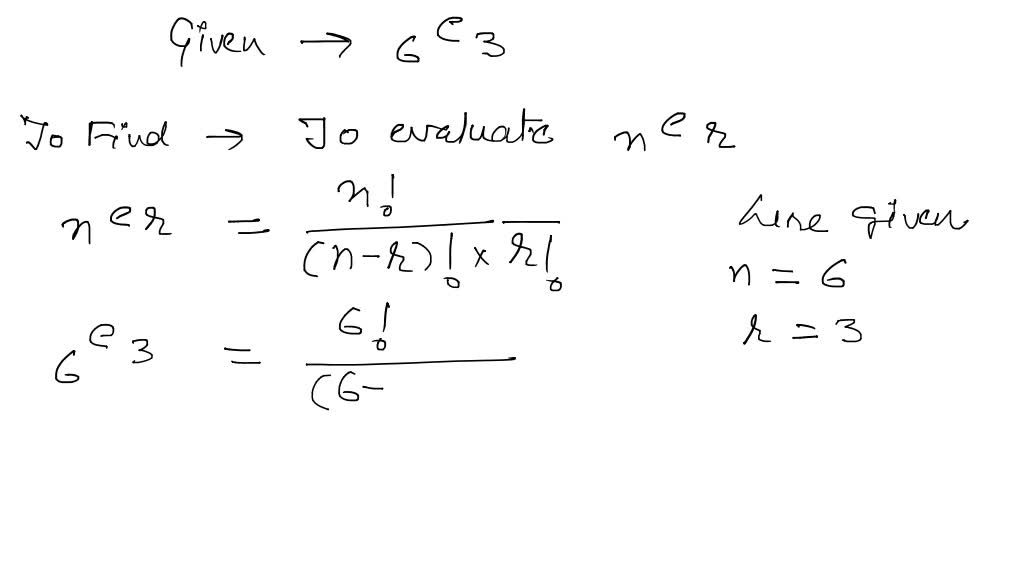 Given → 6 C 3
To Find → To evaluate n C r
n C r = n! / (n-r)! × r!
here given
n = 6
r = 3
6 C 3 = 6! / (6-